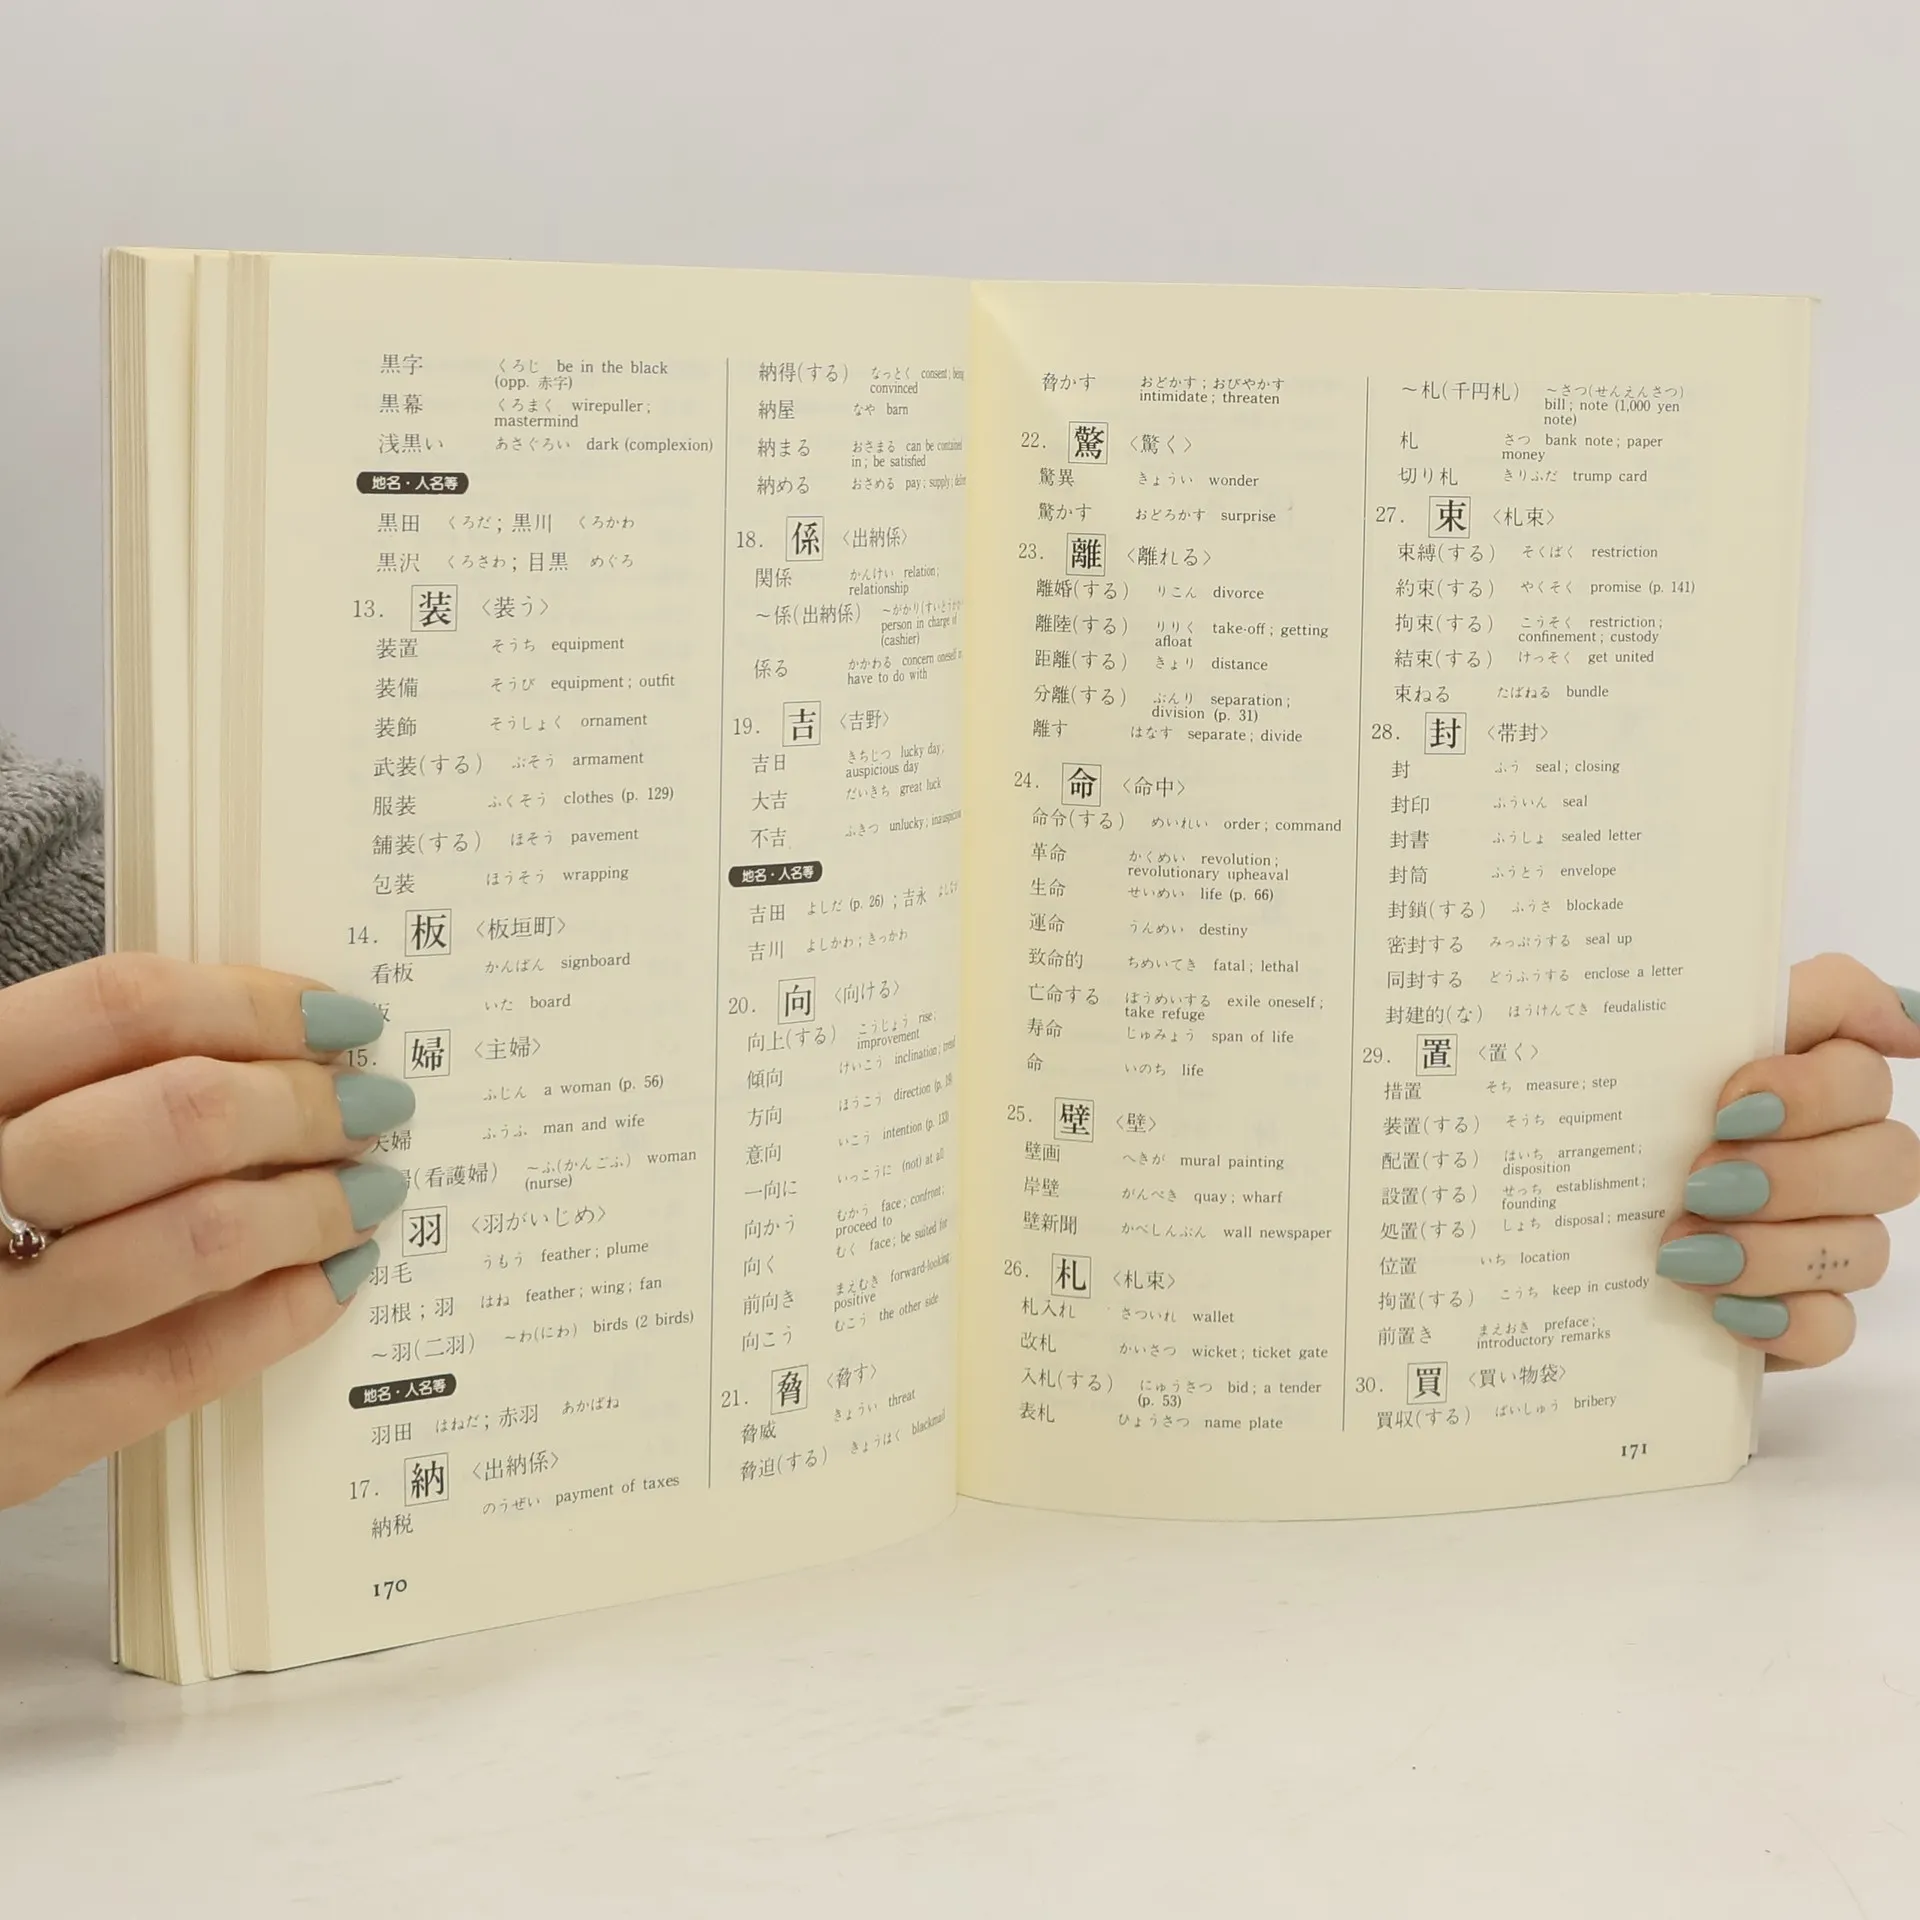 黒字 くろじ be in the black
(opp. 赤字)
黒幕 くろまく wirepuller;
mastermind
浅黒い あさぐろい dark (complexion)
地名・人名等
黒田 くろだ; 黒川 くろかわ
黒沢 くろさわ; 目黒 めぐろ
13. 装 〈装う〉
装置 そうち equipment
装備 そうび equipment; outfit
装飾 そうしょく ornament
武装(する) ぶそう armament
服装 ふくそう clothes (p. 129)
舗装(する) ほそう pavement
包装 ほうそう wrapping
14. 板 〈板垣町〉
看板 かんばん signboard
いた board
15. 婦 〈主婦〉
ふじん a woman (p. 56)
夫婦 ふうふ man and wife
(看護婦) ～ふ(かんごふ) woman
(nurse)
羽 〈羽がいじめ〉
羽毛 うもう feather; plume
羽根; 羽 はね feather; wing; fan
～羽(二羽) ～わ(にわ) birds (2 birds)
地名・人名等
羽田 はねだ; 赤羽 あかばね
17. 納 〈出納係〉
納税 のうぜい payment of taxes
170
納得(する) なっとく consent; being
convinced
納屋 なや barn
納まる おさまる can be contained
in; be satisfied
納める おさめる pay; supply;
18. 係 〈出納係〉
関係 かんけい relation;
relationship
～係(出納係) ～がかり(すいとうが
person in charge of
(cashier)
係る かかわる concern oneself
have to do with
19. 吉 〈吉野〉
吉日 きちじつ lucky day;
auspicious day
大吉 だいきち great luck
不吉 ふきつ unlucky;
地名・人名等
吉田 よしだ (p. 26); 吉永
吉川 よしかわ; きっかわ
20. 向 〈向ける〉
向上(する) こうじょう rise;
improvement
傾向 けいこう inclination; trend
方向 ほうこう direction (p.
意向 いこう intention (p. 133)
一向に いっこうに (not) at all
向かう むかう face; confront;
proceed to
向く むく face; be suited for
前向き まえむき forward-looking;
positive
向こう むこう the other side
21. 脅 〈脅す〉
脅威 きょうい threat
脅迫(する) きょうはく blackmail
脅かす おどかす; おびやかす
intimidate; threaten
22. 驚 〈驚く〉
驚異 きょうい wonder
驚かす おどろかす surprise
23. 離 〈離れる〉
離婚(する) りこん divorce
離陸(する) りりく take-off; getting
afloat
距離(する) きょり distance
分離(する) ぶんり separation;
division (p. 31)
離す はなす separate; divide
24. 命 〈命中〉
命令(する) めいれい order; command
革命 かくめい revolution;
revolutionary upheaval
生命 せいめい life (p. 66)
運命 うんめい destiny
致命的 ちめいてき fatal; lethal
亡命する ぼうめいする exile oneself;
take refuge
寿命 じゅみょう span of life
命 いのち life
25. 壁 〈壁〉
壁画 へきが mural painting
岸壁 がんぺき quay; wharf
壁新聞 かべしんぶん wall newspaper
26. 札 〈札束〉
札入れ さついれ wallet
改札 かいさつ wicket; ticket gate
入札(する) にゅうさつ bid; a tender
(p. 53)
表札 ひょうさつ name plate
～札(千円札) ～さつ(せんえんさつ)
bill; note (1,000 yen
note)
札 さつ bank note; paper
money
切り札 きりふだ trump card
27. 束 〈札束〉
束縛(する) そくばく restriction
約束(する) やくそく promise (p. 141)
拘束(する) こうそく restriction;
confinement; custody
結束(する) けっそく get united
束ねる たばねる bundle
28. 封 〈帯封〉
封 ふう seal; closing
封印 ふういん seal
封書 ふうしょ sealed letter
封筒 ふうとう envelope
封鎖(する) ふうさ blockade
密封する みっぷうする seal up
同封する どうふうする enclose a letter
封建的(な) ほうけんてき feudalistic
29. 置 〈置く〉
措置 そち measure; step
装置(する) そうち equipment
配置(する) はいち arrangement;
disposition
設置(する) せっち establishment;
founding
処置(する) しょち disposal; measure
位置 いち location
拘置(する) こうち keep in custody
前置き まえおき preface;
introductory remarks
30. 買 〈買い物袋〉
買収(する) ばいしゅう bribery
171